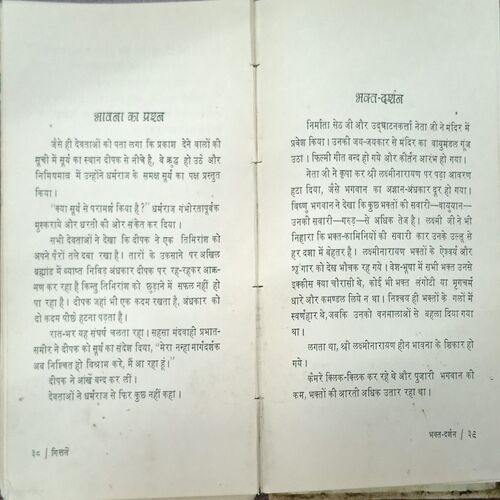 भावना का प्रश्न
जैसे ही देवताओं को पता लगा कि प्रकाश देने वालों की
सूची में सूर्य का स्थान दीपक से नीचे है, वे क्रुद्ध हो उठे और
निमिषमात्र में उन्होंने धर्मराज के समक्ष सूर्य का पक्ष प्रस्तुत
किया।
“क्या सूर्य से परामर्श किया है?” धर्मराज गंभीरतापूर्वक
मुस्कराये और धरती की ओर संकेत कर दिया।
सभी देवताओं ने देखा कि दीपक ने एक तिमिरांश को
अपने पैरों तले दबा रखा है। तारों के उकसाने पर अखिल
ब्रह्मांड में व्याप्त निविड़ अंधकार दीपक पर रह-रहकर आक्र-
मण कर रहा है किन्तु तिमिरांश को छुड़ाने में सफल नहीं हो
पा रहा है। दीपक जहां भी एक कदम रखता है, अंधकार को
दो कदम पीछे हटना पड़ता है।
रात-भर यह संघर्ष चलता रहा। सहसा मंदवाही प्रभात-
समीर ने दीपक को सूर्य का संदेश दिया, “मेरा नन्हा मार्गदर्शक
अब निश्चिंत हो विश्राम करे, मैं आ रहा हूं।”
दीपक ने आंखें बन्द कर लीं।
देवताओं ने धर्मराज से फिर कुछ नहीं कहा।
३८ / मिल्लतें
भक्त-दर्शन
निर्माता सेठ जी और उद्घाटनकर्त्ता नेता जी ने मंदिर में
प्रवेश किया। उनकी जय-जयकार से मंदिर का वायुमंडल गूंज
उठा। फिल्मी गीत बन्द हो गये और कीर्तन आरंभ हो गया।
नेता जी ने कृपा कर श्री लक्ष्मीनारायण पर पड़ा आवरण
हटा दिया, जैसे भगवान का अज्ञान-अंधकार दूर हो गया।
विष्णु भगवान ने देखा कि कुछ भक्तों की सवारी—वायुयान—
उनकी सवारी—गरुड़—से अधिक तेज है। लक्ष्मी जी ने भी
निहारा कि भक्त-कामिनियों की सवारी कार उनके उल्लू से
हर दशा में बेहतर है। लक्ष्मीनारायण भक्तों के ऐश्वर्य और
श्रृंगार को देख भौचक रह गये। वेश-भूषा में सभी भक्त उनसे
इक्कीस क्या चौरासी थे, कोई भी भक्त लंगोटी या मृगचर्म
धारे और कमण्डल लिये न था। निश्चय ही भक्तों के गलों में
स्वर्णहार थे, जबकि उनको वनमालाओं से बहला दिया गया
था।
लगता था, श्री लक्ष्मीनारायण हीन भावना के शिकार हो
गये।
कैमरे क्लिक-क्लिक कर रहे थे और पुजारी भगवान की
कम, भक्तों की आरती अधिक उतार रहा था।
भक्त-दर्शन / ३९